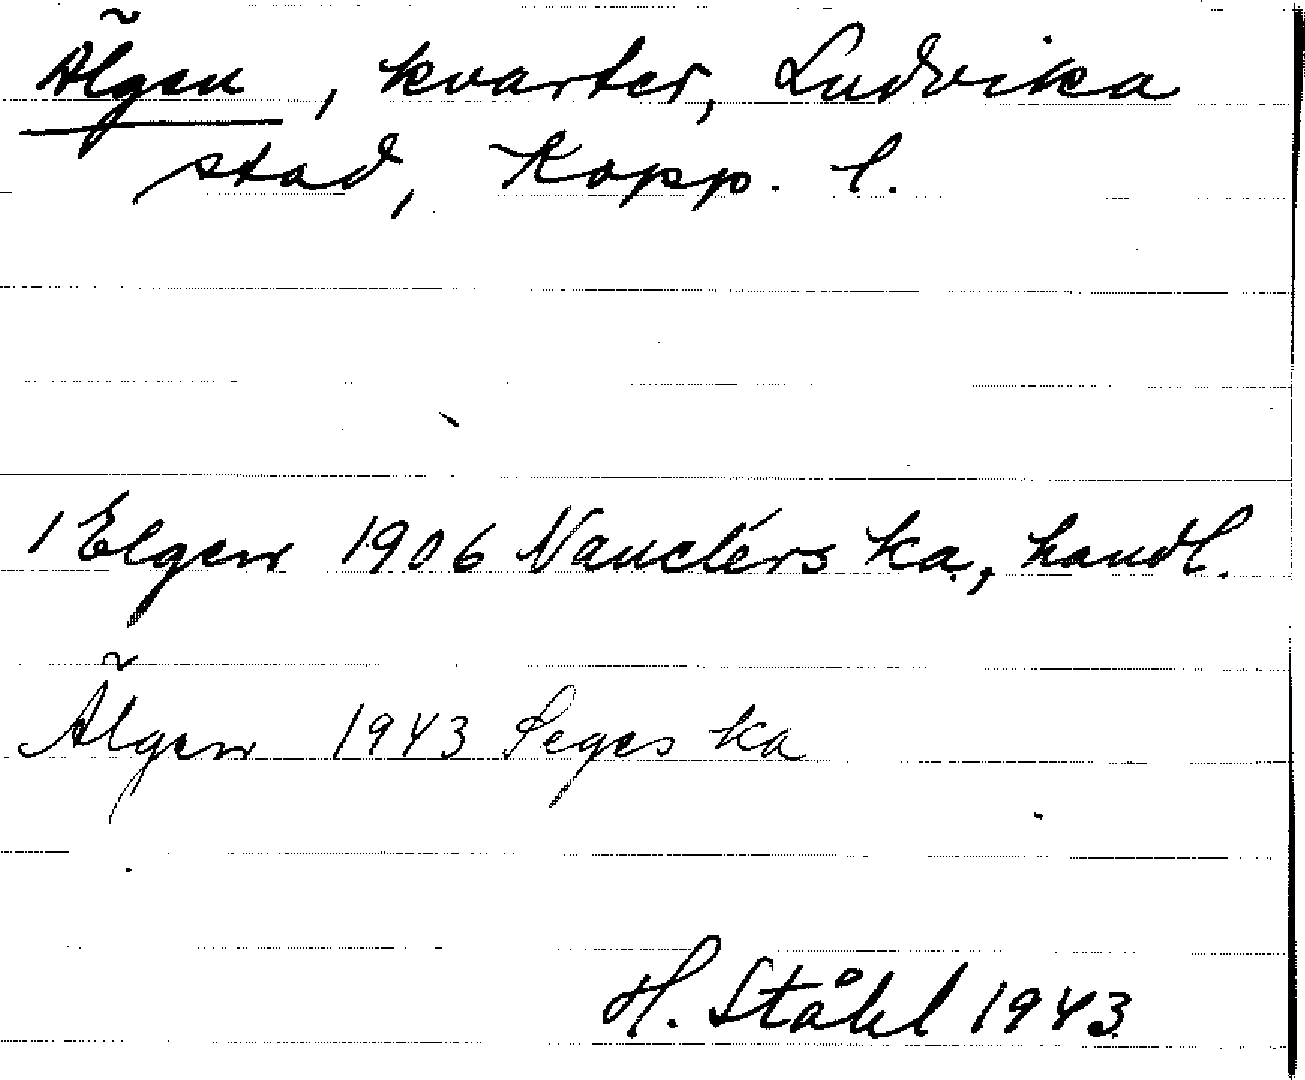 Älgen, kvarter, Ludvika
stad, Kopp. l.
1 Elgen 1906 Nauclérs ka, handl.
Älgen 1943 Seges ka
H. Ståhl 1943